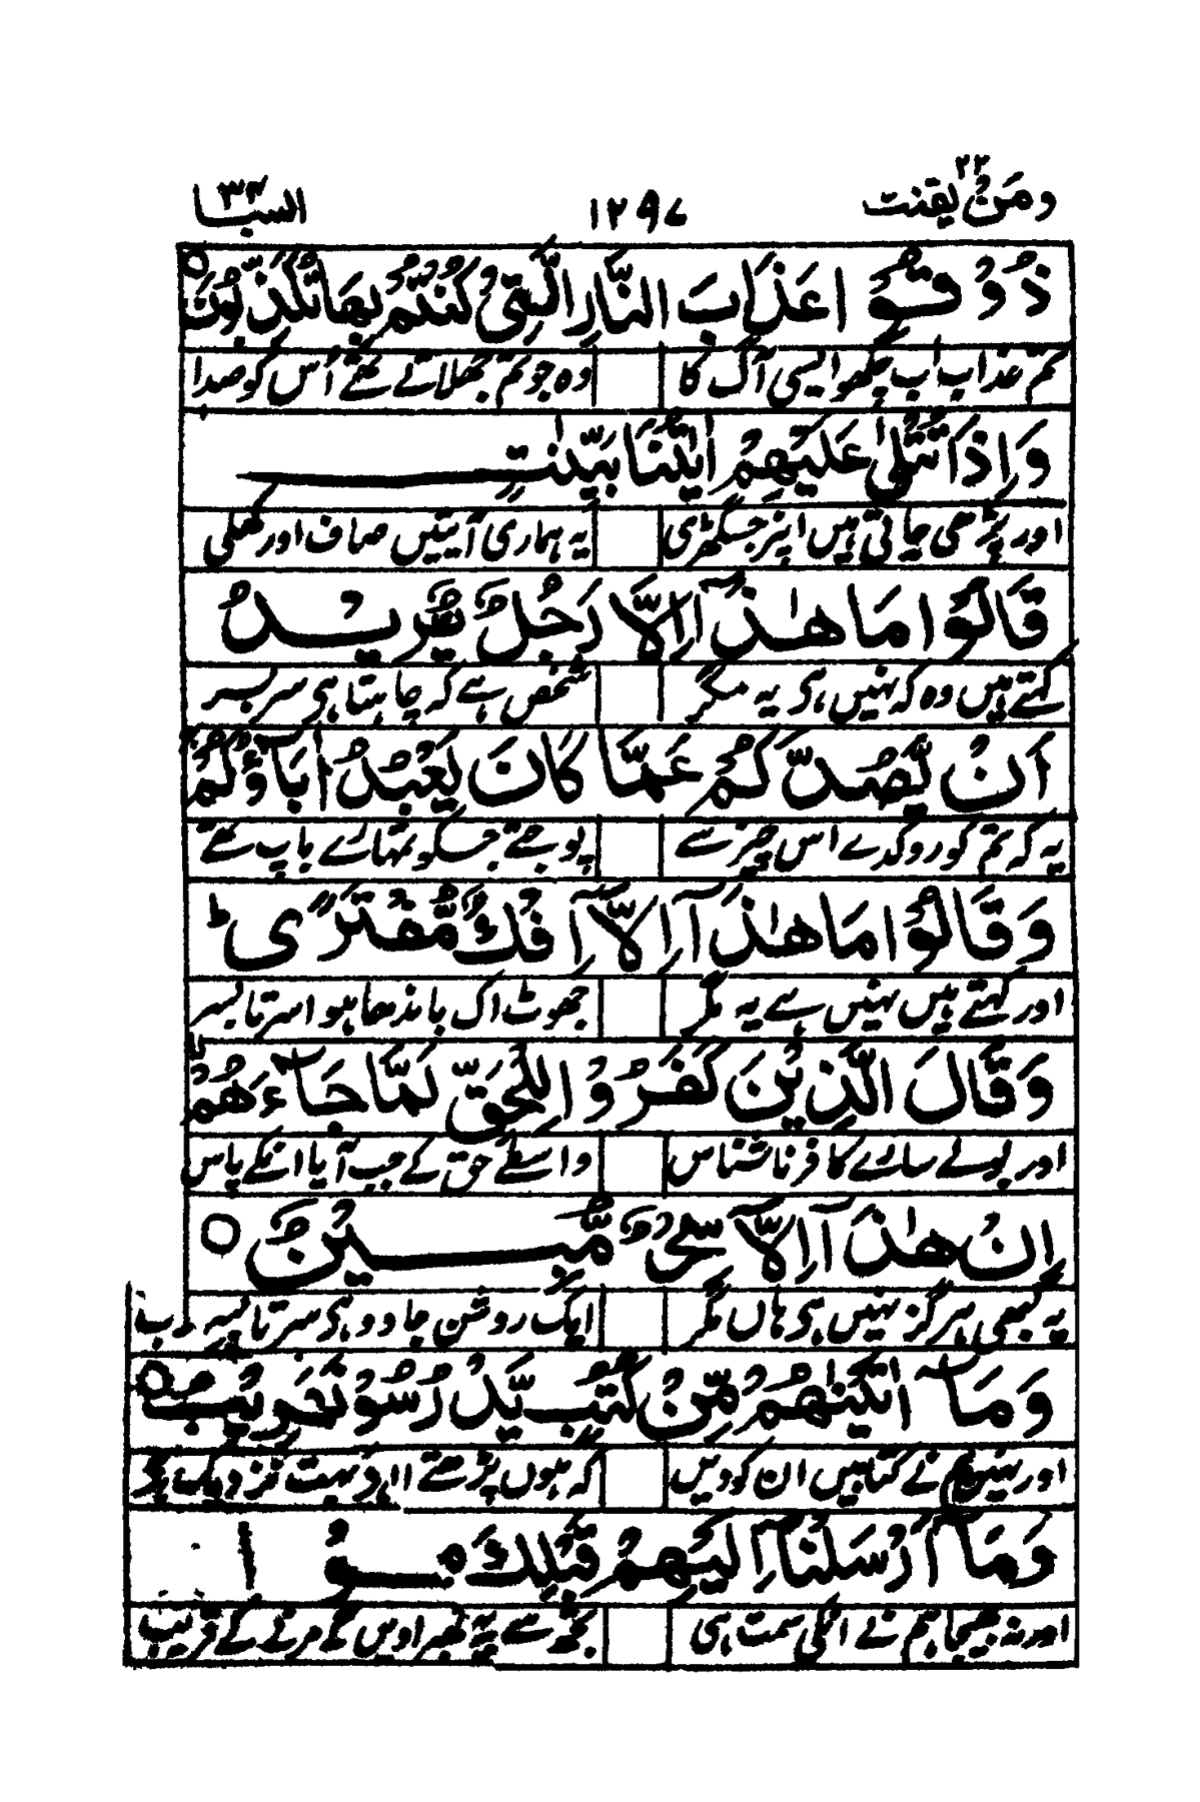 ومن یقنت ۲۲ ۱۲۹۷ السبا ۳۴
ذُوْقُوْا عَذَابَ النَّارِ الَّتِیْ كُنْتُمْ بِهَا تُكَذِّبُوْنَ
تم عذاب اب چکھو ایسی آگ کا وہ جو تم جھلاتے تھے اُس کو صدا
وَاِذَا تُتْلٰی عَلَیْهِمْ اٰیٰتُنَا بَیِّنٰتٍ
اور پڑھی جاتی ہیں اپنر جس گھڑی یہ ہماری آیتیں صاف اور کھلی
قَالُوْا مَا هٰذَآ اِلَّا رَجُلٌ یُّرِیْدُ
کہتے ہیں وہ کہ نہیں ہی یہ مگر شخص ہے کہ چاہتا ہی سربسر
اَنْ یَّصُدَّكُمْ عَمَّا كَانَ یَعْبُدُ اٰبَآؤُكُمْ
یہ کہ تم کو روکدے اس چیز سے پوجتے جسکو تمہارے باپ تھے
وَقَالُوْا مَا هٰذَآ اِلَّآ اِفْكٌ مُّفْتَرًی ط
اور کہتے ہیں نہیں ہے یہ مگر جھوٹ اک باندھا ہوا سرتا بسر
وَقَالَ الَّذِیْنَ كَفَرُوْا لِلْحَقِّ لَمَّا جَآءَهُمْ
اور بولے سارے کافر ناشناس واسطے حق کے جب آیا انکے پاس
اِنْ هٰذَآ اِلَّا سِحْرٌ مُّبِیْنٌ
یہ کبھی ہرگز نہیں ہی ہاں مگر ایک روشن جادو ہی سرتا بسر
وَمَآ اٰتَیْنٰهُمْ مِّنْ كُتُبٍ یَّدْرُسُوْنَ
اور نہیں ہم نے کتابیں ان کو دیں کہ ہوں پڑھتے
وَمَآ اَرْسَلْنَآ اِلَیْهِمْ قَبْلَكَ مِ
اور نہ بھیجا ہم نے انکی سمت ہی تجھ سے کے قریب